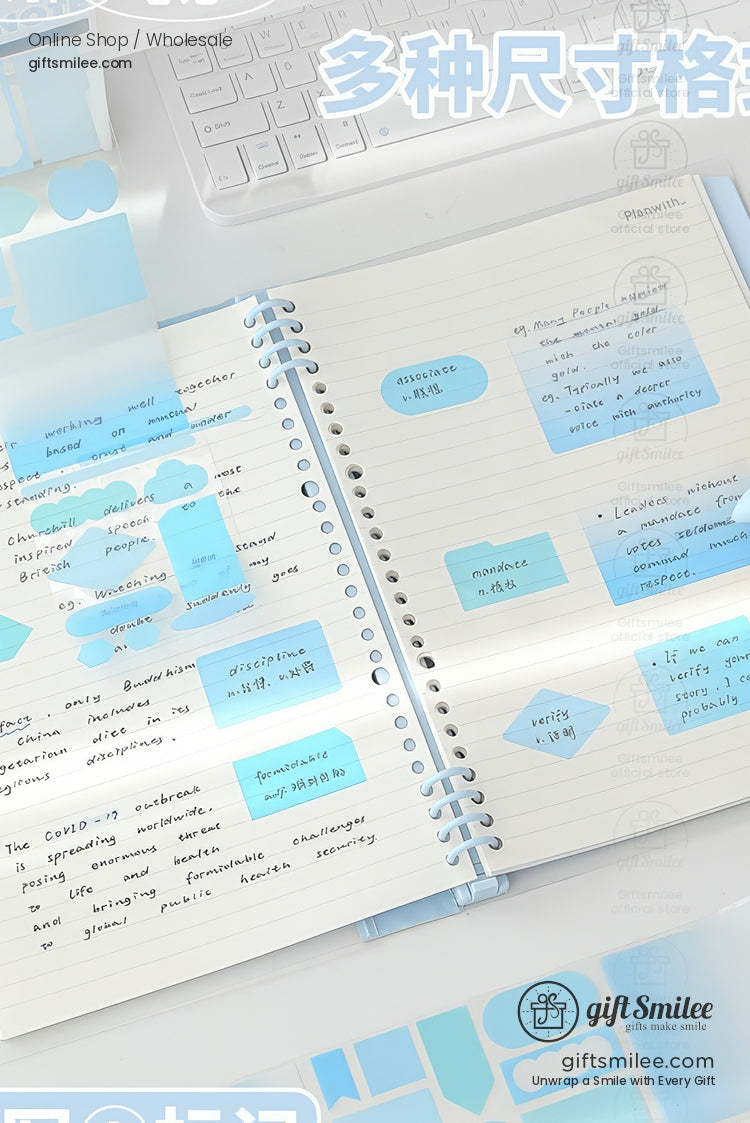 Online Shop / Wholesale
giftsmilee.com
多种尺寸格
Planwith_
working well together
based on mutual
trust and under
standing.
Churchill delivers a most
inspired speech to the
British people.
eg. Watching stand
my goes
doubt suddenly
discipline
fact. only Buddhism
China includes
vegetarian diet in its
religious disciplines.
formidable
The COVID-19 outbreak
is spreading worldwide,
posing enormous threat
to life and health
and bringing formidable challenges
to global public health security.
associate
v.联想
eg. Many People associate
the mental gold
with the color
gold.
eg. Typically we asso
-ciate a deeper
voice with authority
mandate
n.授权
• Leaders without
a mandate from
votes seldom
command much
respect.
verify
v.证明
• If we can
verify your
story. I co
probably
gift Smilee
Giftsmilee
official store
gift Smilee
gifts make smile
giftsmilee.com
Unwrap a Smile with Every Gift
标记